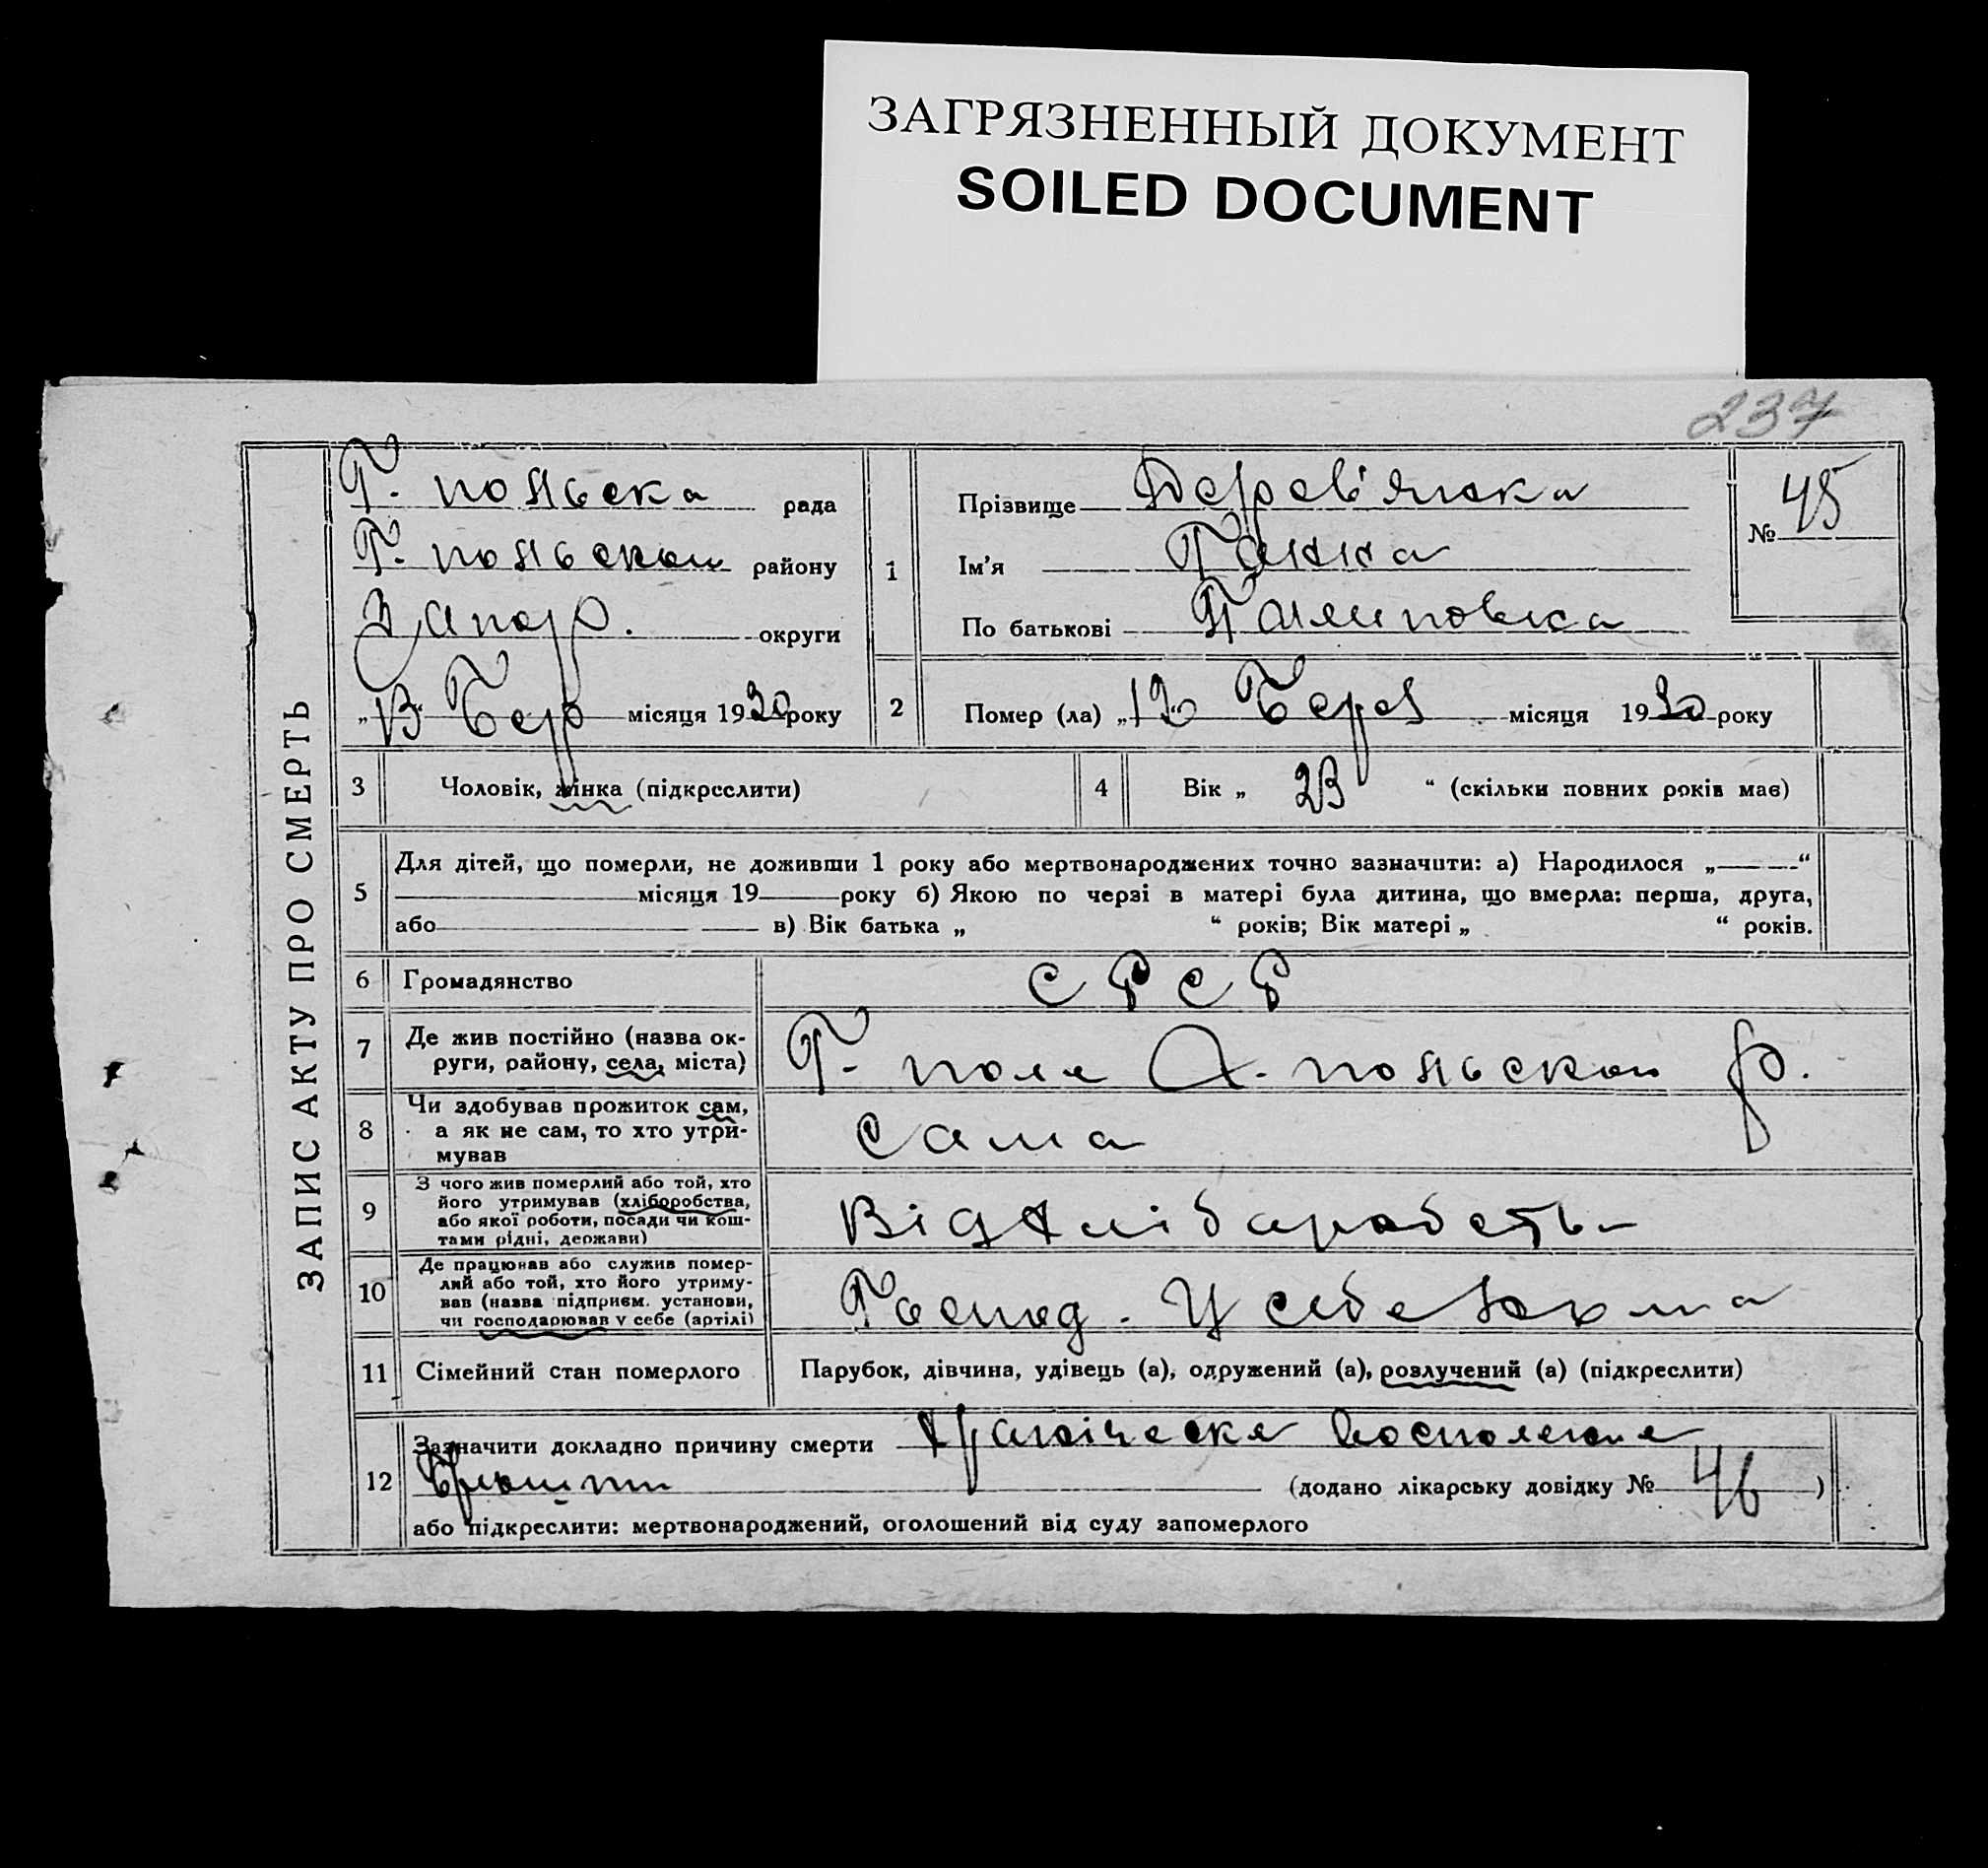 ЗАГРЯЗНЕННЫЙ ДОКУМЕНТ
SOILED DOCUMENT
237
ЗАПИС АКТУ ПРО СМЕРТЬ
Г. польска рада
Г. польскои району
Запор. округи
„13“ Бер місяця 1930 року
1
Прізвище Дерев'янка
Ім'я Ганна
По батькові
№ 45
2 Помер (ла) „12“ Берез місяця 1930 року
3 Чоловік, жінка (підкреслити)
4 Вік „ 23 “ (скільки повних років має)
5 Для дітей, що померли, не доживши 1 року або мертвонароджених точно зазначити: а) Народилося „——“
місяця 19 року б) Якою по черзі в матері була дитина, що вмерла: перша, друга,
або в) Вік батька „ “ років; Вік матері „ “ років.
6 Громадянство СРСР
7 Де жив постійно (назва округи, району, села, міста)
Г. поле Г. польскои р.
8 Чи здобував прожиток сам,
а як не сам, то хто утри-
мував
сама
9 З чого жив померлий або той, хто
його утримував (хліборобства,
або якої роботи, посади чи кош-
тами рідні, держави)
Від хліборобств
10 Де працював або служив помер-
лий або той, хто його утриму-
вав (назва підприєм. установи,
чи господарював у себе (артілі)
Господ. У себе дома
11 Сімейний стан померлого Парубок, дівчина, удівець (а), одружений (а), розлучений (а) (підкреслити)
12 Зазначити докладно причину смерти Хроническе
(додано лікарську довідку № 46)
або підкреслити: мертвонароджений, оголошений від суду запомерлого